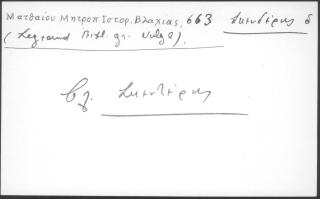 Ματθαίου Μητροπ Ιστορ. Βλαχίας, 663 Σκενδέρης δ
(Legrand Bibl. gr. Vulg.).
βλ. Σκενδέρης